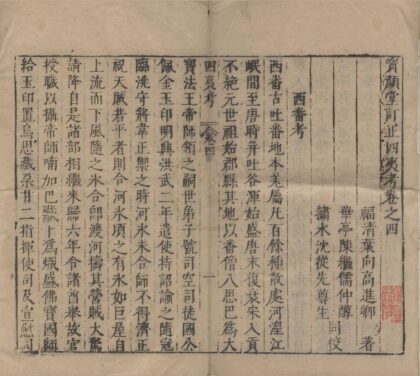 寶顏堂訂正四夷考卷之四
福清葉向高進卿著
華亭陳繼儒仲醇
繡水沈從先尊生同校
西番考
西番古吐番地本羗屬凡百餘種散處河湟江
岷間至唐時并吐谷渾始盛唐末復衰宋入貢
不絶元世祖始郡縣其地以番僧八思巴爲大
四夷考 卷四 一
寶法王帝師領之嗣世弟子號司空司徒國公
佩金玉印明興洪武二年遣使持詔諭之隨冦
臨洮守將韋正禦之時河水未合師不得濟正
祝天賊若平者則合河氷頃之有氷如巨屋自
上流而下風隨之氷合師渡河擣其營賊大驚
請降自是諸部相繼來歸六年令諸酋舉故官
授職以攝帝師喃加巴藏卜爲熾盛佛寶國師
給玉印置烏思藏朶甘二指揮使司及宣慰司